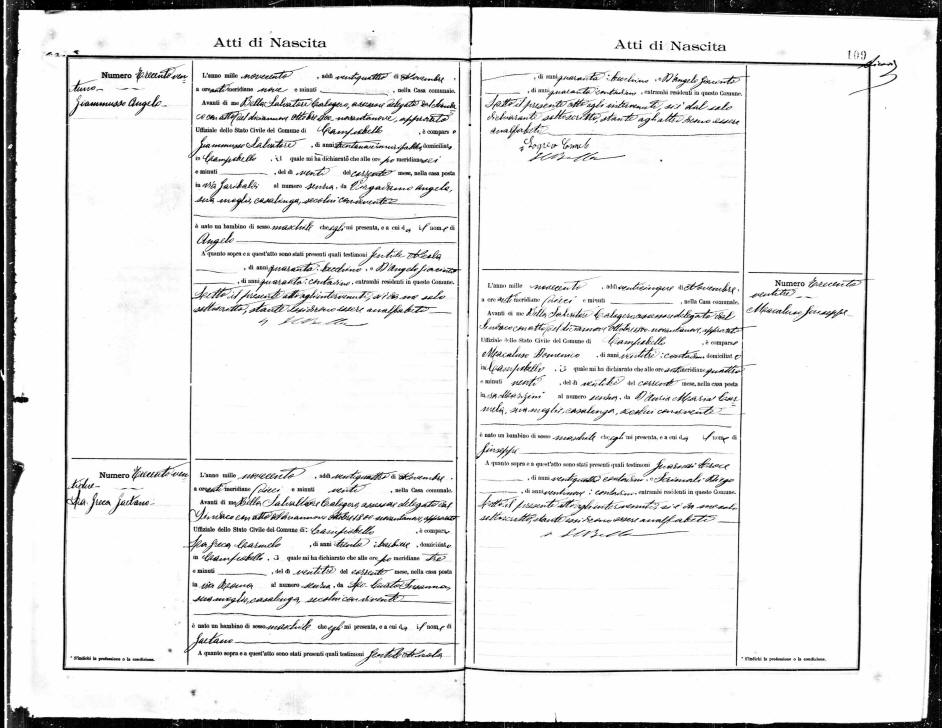 Atti di Nascita
Numero Trecentoven
tuno
Giammusso Angelo
L'anno mille novecento, addì ventiquattro di Novembre,
a ore anti meridiane nove e minuti , nella Casa comunale.
Avanti di me Bella Salvatore Calogero, assessore delegato dal Sindaco
con atto del diciannove ottobre novantanove, approvato
Uffiziale dello Stato Civile del Comune di Campobello, è comparso
Giammusso Salvatore, di anni domiciliato
in Campobello, il quale mi ha dichiarato che alle ore po meridiane sei
e minuti , del dì venti del corrente mese, nella casa posta
in via Garibaldi al numero senza, da Angela,
sua moglie, casalinga, seco lui convivente
è nato un bambino di sesso maschile che egli mi presenta, e a cui dà il nome di
Angelo
A quanto sopra e a quest'atto sono stati presenti quali testimoni Gentile Nicola
, di anni quaranta, becchino, e D'Angelo Giacinto
, di anni quaranta, contadino, entrambi residenti in questo Comune.
Letto il presente atto agli intervenuti, si è da me solo
sottoscritto, stante essere analfabeti
Numero Trecentoven
tidue
La Greca Gaetano
L'anno mille novecento, addì ventiquattro di Novembre,
a ore anti meridiane dieci e minuti venti, nella Casa comunale.
Avanti di me Bella Salvatore Calogero, assessore delegato dal
Sindaco con atto del diciannove ottobre 1800 novantanove, approvato
Uffiziale dello Stato Civile del Comune di Campobello, è comparso
La Greca Carmelo, di anni trenta, barbiere, domiciliato
in Campobello, il quale mi ha dichiarato che alle ore po meridiane tre
e minuti , del dì ventitre del corrente mese, nella casa posta
in via al numero senza, da Lo Curto Susanna,
sua moglie, casalinga, seco lui convivente
è nato un bambino di sesso maschile che egli mi presenta, e a cui dà il nome di
Gaetano
A quanto sopra e a quest'atto sono stati presenti quali testimoni Gentile Nicola
* S'indichi la professione o la condizione.
Atti di Nascita
109
, di anni quaranta, becchino, e D'Angelo Giacinto
, di anni quaranta, contadino, entrambi residenti in questo Comune.
Letto il presente atto agli intervenuti, si è dal solo
dichiarante sottoscritto, stante gli altri essere
analfabeti
L'anno mille novecento, addì venticinque di Novembre,
a ore anti meridiane dieci e minuti , nella Casa comunale.
Avanti di me Bella Salvatore Calogero, assessore delegato dal
Sindaco con atto del diciannove ottobre 1800 novantanove, approvato
Uffiziale dello Stato Civile del Comune di Campobello, è comparso
Macaluso Domenico, di anni ventitre, contadino, domiciliato
in Campobello, il quale mi ha dichiarato che alle ore anti meridiane quattro
e minuti venti, del dì ventitre del corrente mese, nella casa posta
in via Mazzini al numero senza, da D'Auria Maria Car
mela, sua moglie, casalinga, seco lui convivente
è nato un bambino di sesso maschile che egli mi presenta, e a cui dà il nome di
Giuseppe
A quanto sopra e a quest'atto sono stati presenti quali testimoni
, di anni ventiquattro, contadino, e
, di anni ventinove, contadino, entrambi residenti in questo Comune.
Letto il presente atto agli intervenuti, si è da me solo
sottoscritto, stante essere analfabeti
Numero Trecento
ventitre
Macaluso Giuseppe
* S'indichi la professione o la condizione.